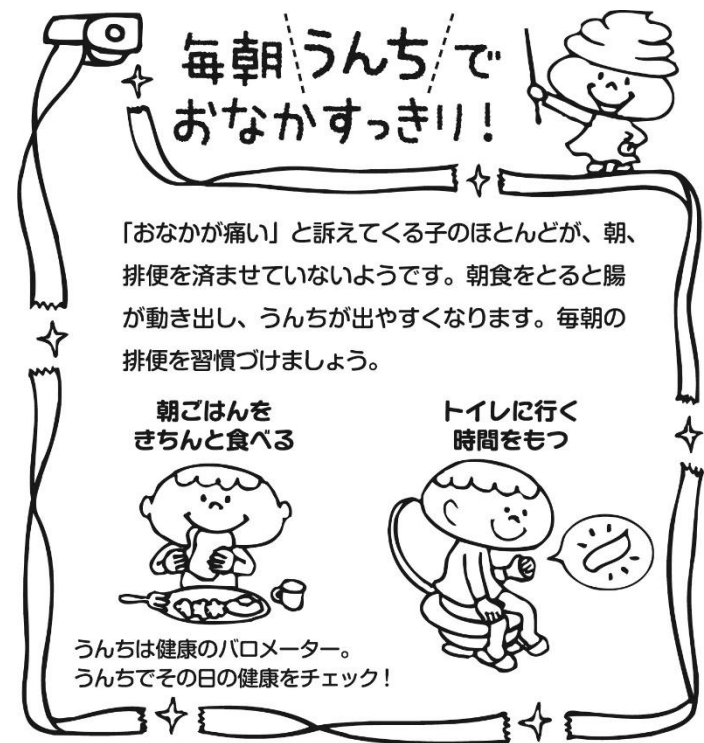 毎朝うんちで
おなかすっきり！
「おなかが痛い」と訴えてくる子のほとんどが、朝、
排便を済ませていないようです。朝食をとると腸
が動き出し、うんちが出やすくなります。毎朝の
排便を習慣づけましょう。
朝ごはんを
きちんと食べる
トイレに行く
時間をもつ
うんちは健康のバロメーター。
うんちでその日の健康をチェック！